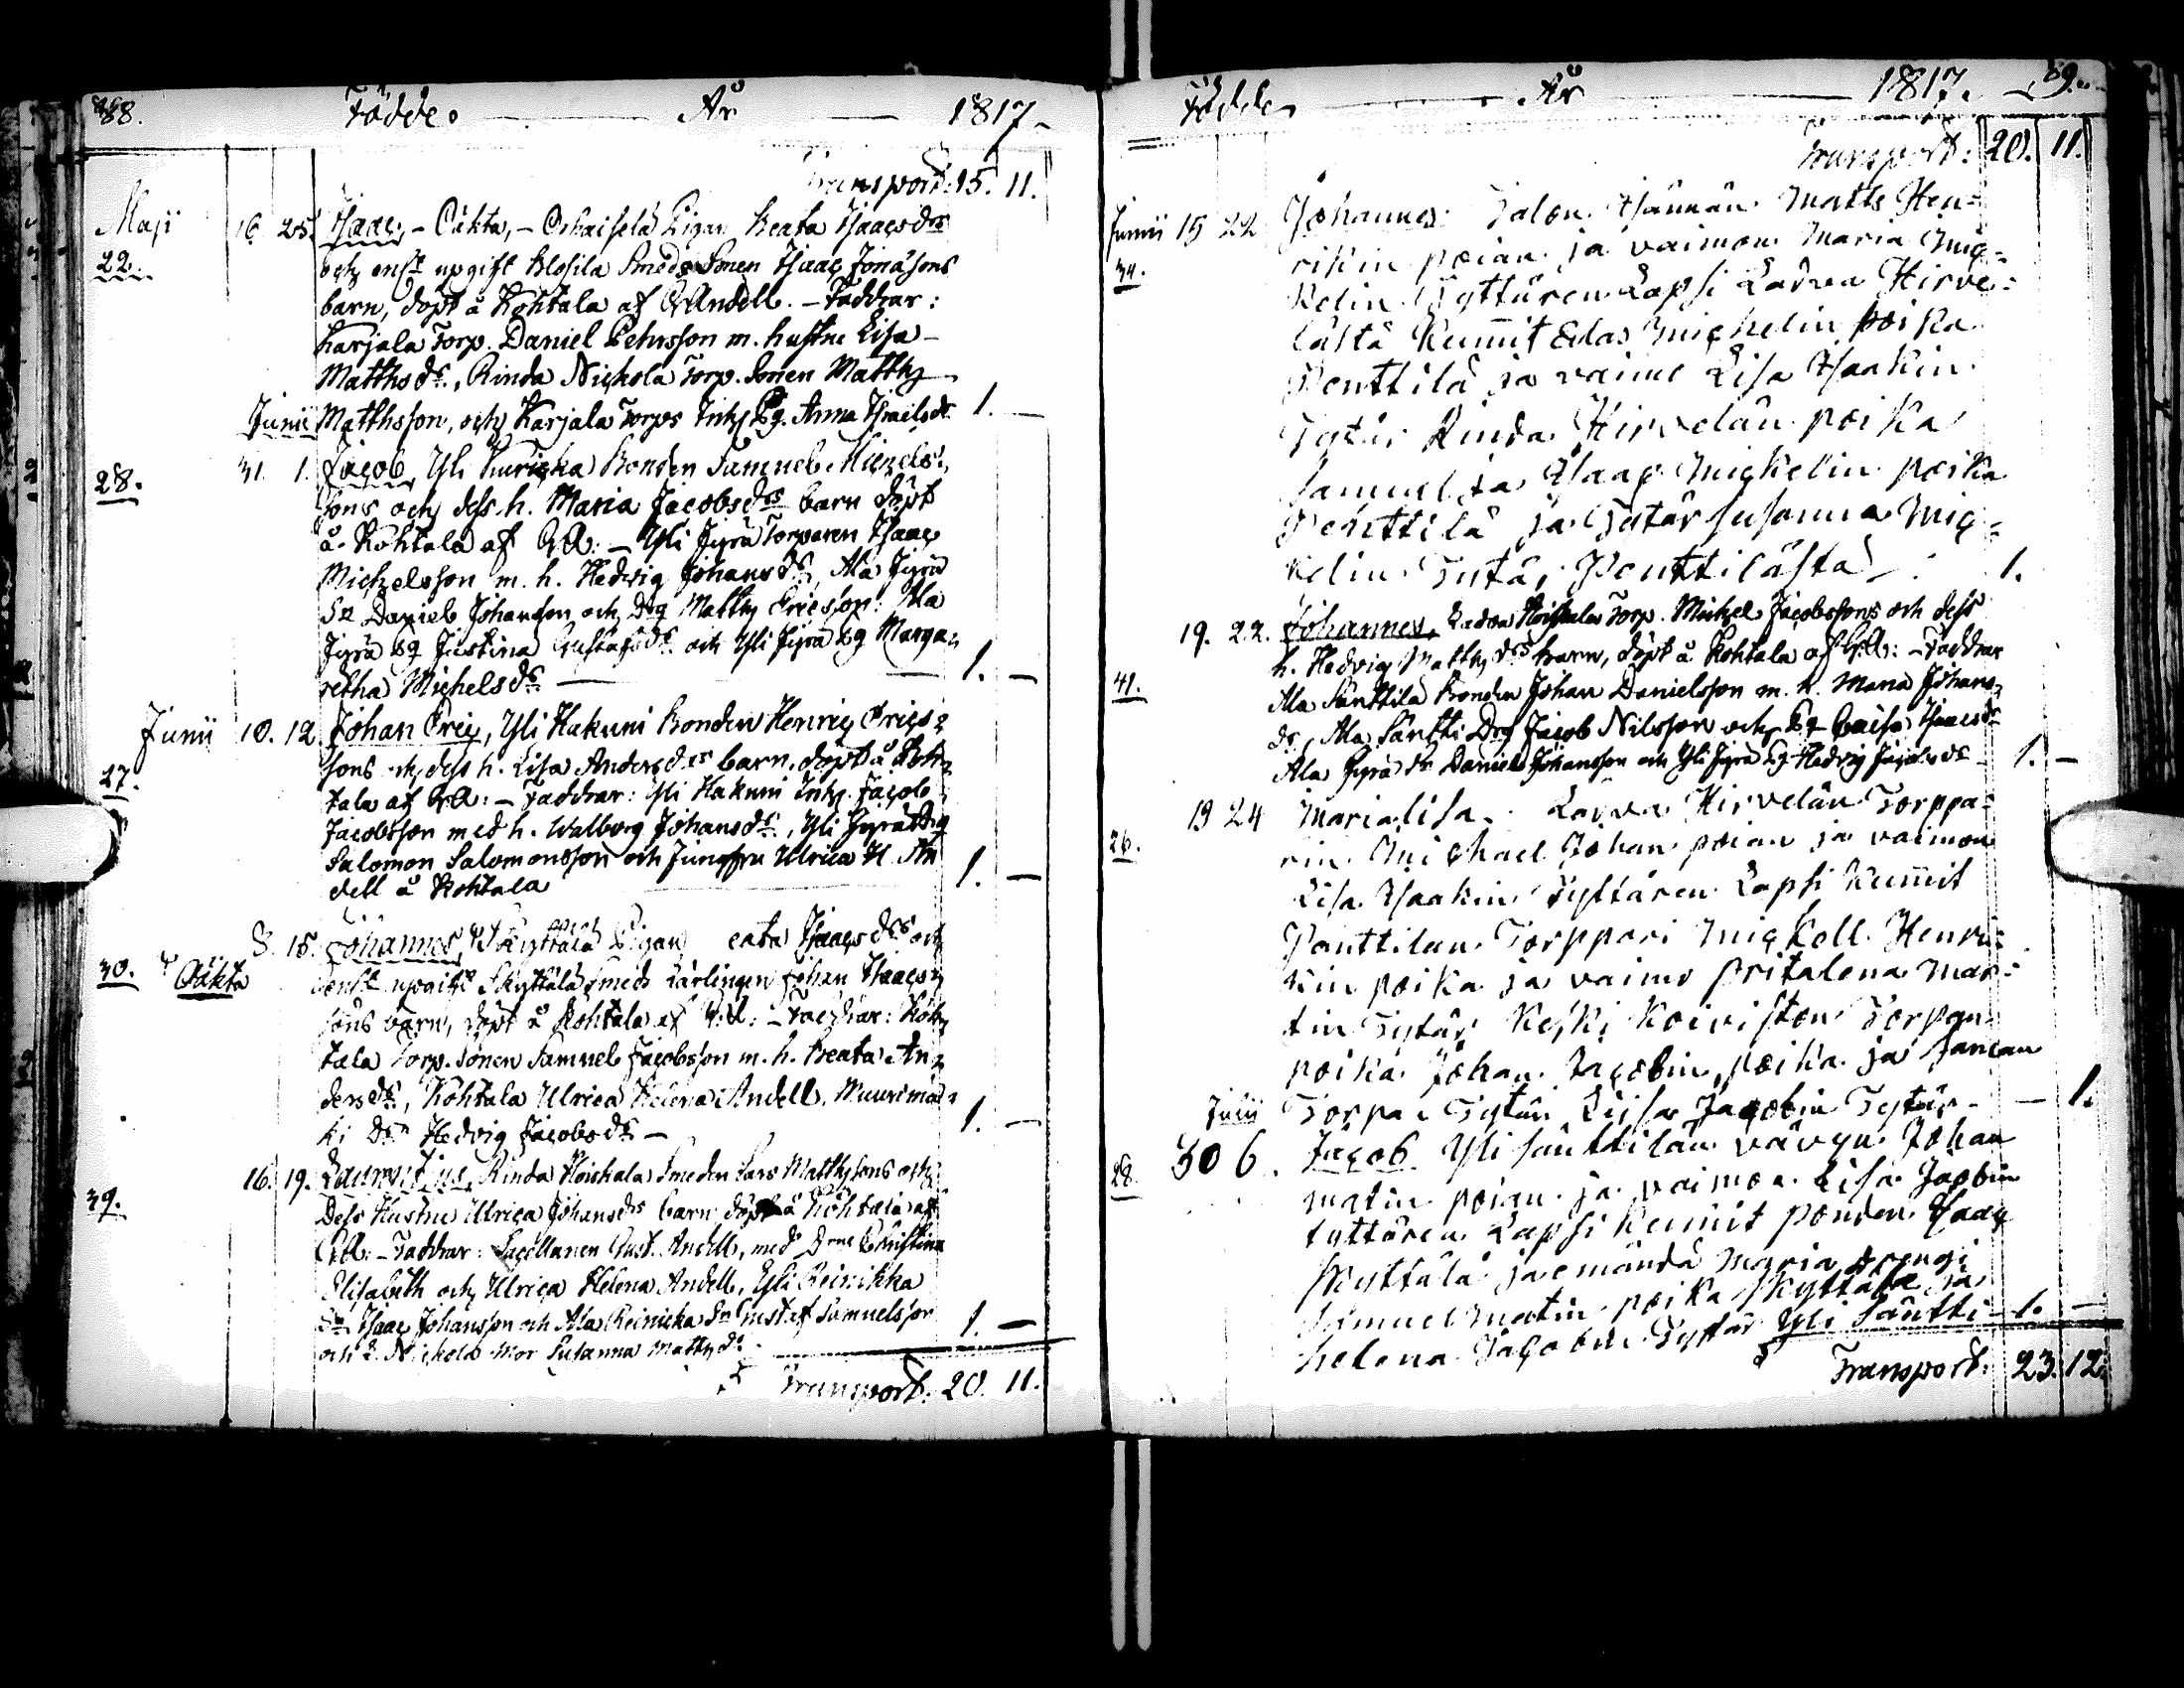 88. Födde. År 1817.
Transport. 15. 11.
Maji 16 25. Isaac, - Oäkta, - Pigan Beata Isaacsdrs
22. och enl. upgift Klosila Smeds Sonen Isaac Jonasons
barn, döpt å Kohtala af G. Andell. - Faddrar:
Karjala Torp. Daniel Pehrsson m. hustru Lisa
Matthsdr., Rinda Nichola Torp. Sonen Matths
Junii Matthsson, och Karjala Torps Inhs Pg. Anna Israelsdr. 1. -
28. 31. 1. Jacob, Yli Bonden Samuel Michels-
sons och dess h. Maria Jacobsdrs barn döpt
å Kohtala af G.A: - Yli Jyrä Torparen Isaac
Michelsson m. h. Hedvig Johansdr, Ala Jyrä
Sn Daniel Johansson och Drg Matths Ericsson: Ala
Jyrä Pg Justina Gustafsdr och Yli Jyrä Pg Marga-
retha Michelsdr - 1. -
Junii 10. 12. Johan Eric, Yli Hakuni Bonden Henric Erics-
27. sons och dess h. Lisa Andersdrs barn, döpt å Koh-
tala af G.A: - Faddrar: Yli Hakuni Inhs. Jacob
Jacobsson med h. Walborg Johansdr., Yli Jyrä Drg
Salomon Salomonsson och Jungfru Ulrica H. An
dell å Kohtala 1. -
8. 15. Johannes, Skyttälä Pigan eata Isaacsdrs och
30. Oäkta enl. upgift Skyttälä smeds Lärlingen Johan Isaacs-
sons barn, döpt å Kohtala af G.A: - Faddrar: Koh-
tala Torp. Sonen Samuel Jacobsson m. h. Beata An-
dersdr., Kohtala Ulrica Helena Andell, Muurimä-
ki Dr. Hedvig Jacobsdr - 1. -
16. 19. Laurentius, Rinda Hoiskala Smeden Lars Matthssons och
39. Dess Hustru Ulrica Johansdrs barn döpt å Kohtala af
G.A: - Faddrar: Sacellanen Gust. Andell, med Drne Christina
Elisabeth och Ulrica Helena Andell, Yli Reinikka
Sn Isaac Johansson och Ala Reinicka Sn Gustaf Samuelsson
och Nickola Mor Susanna Matthsdr. 1. -
Transport. 20. 11.
Födde År 1817. 89.
Transport: 20. 11.
Junii 15 22 Johannes. Talon Matts Hen-
34. rikin poian ja vaimon Maria Mic-
kelin Tyttären Lapsi Ladva Hirve-
lästä Kummit Edas Michelin poika
Penttilä ja vaimo Lisa Isaakin
Tytär Rinda Hirvelän poika
Samuel ja Isaac Michelin poika
Penttilä ja Tytär Susanna Mic-
kelin Tytä, Penttilästä 1.
19. 22. Johannes, Ladva Hoiskala Torp. Michel Jacobssons och dess
41. h. Hedvig Matthsdrs barn, döpt å Kohtala af G.A: - Faddrar
Ala Säntti Bonden Johan Danielsson m. h. Maria Johans-
dr, Ala Säntti Drg Jacob Nilsson och Pg Caisa Isaacsdr
Ala Jyrä Sn Daniel Johansson och Yli Jyrä Pg Hedvig Jacobsdr 1. -
19 24 Maria lisa. Ladva Hirvelän Torppa-
26. rin Michael Johan poian ja vaimon
Lisa Isaakin Tyttären Lapsi Kummit
Panttilan Torppari Mickell Henri-
kin poika ja vaimo pritalena Mar-
tin Tytär Keski Koiviston Torpan
poika Johan Jacobin poika ja
Julii Torpa Tytär Liisa Jacobin Tytär - 1.
28. 30 6. Jacob Yli Sänttilän vävyn Johan
matin poian ja vaimon Lisa Jacobin
tyttären Lapsi Kummit ponden Isaac
Skyttälä ja emändä Maria drengi
Samuel Matin poika Skyttälä ja
helena Jacobin Tytär Yli Säntti 1. -
Transport. 23. 12.